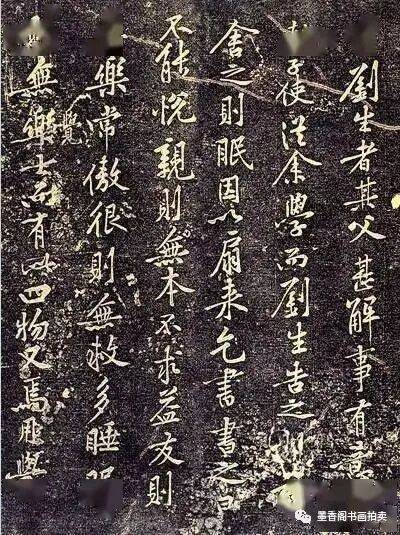 劉生者其父甚解事有意
子使從余學而劉生告之則
舍之則眠因以扇来乞書書之曰
不能悦親則無本不求益友則
樂常傲很則無救多睡眠
無樂覺士而有此四物又焉用學
墨香阁书画拍卖